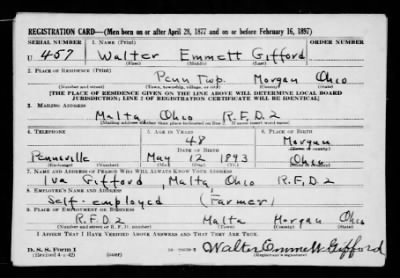 REGISTRATION CARD—(Men born on or after April 28, 1877 and on or before February 16, 1897)
SERIAL NUMBER 1. NAME (Print) ORDER NUMBER
U 457 Walter Emmett Gifford
(First) (Middle) (Last)
2. PLACE OF RESIDENCE (Print)
Penn Twp. Morgan Ohio
(Number and street) (Town, township, village, or city) (County) (State)
[THE PLACE OF RESIDENCE GIVEN ON THE LINE ABOVE WILL DETERMINE LOCAL BOARD
JURISDICTION; LINE 2 OF REGISTRATION CERTIFICATE WILL BE IDENTICAL]
3. MAILING ADDRESS
Malta Ohio R.F.D.2
[Mailing address if other than place indicated on line 2. If same insert word same]
4. TELEPHONE 5. AGE IN YEARS 6. PLACE OF BIRTH
48 Morgan
DATE OF BIRTH (Town or county)
Pennsville May 12 1893 Ohio
(Exchange) (Number) (Mo.) (Day) (Yr.) (State or country)
7. NAME AND ADDRESS OF PERSON WHO WILL ALWAYS KNOW YOUR ADDRESS
Iva Gifford, Malta Ohio R.F.D.2
8. EMPLOYER'S NAME AND ADDRESS
Self-employed (Farmer)
9. PLACE OF EMPLOYMENT OR BUSINESS
R.F.D.2 Malta Morgan Ohio
(Number and street or R. F. D. number) (Town) (County) (State)
I AFFIRM THAT I HAVE VERIFIED ABOVE ANSWERS AND THAT THEY ARE TRUE.
D. S. S. Form 1 Walter Emmett Gifford
(Revised 4-1-42) (over) (Registrant's signature)